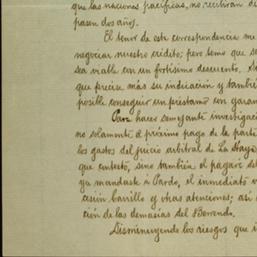 que las naciones pacíficas, no recibirán d
pasen dos años.
El tenor de esta correspondencia me
negociar nuestro crédito; pero temo que s
sea viable con un fortísimo descuento. 
que precise más su indicación y tambié
posible conseguir un préstamo con garan
Para hacer semejante investigac
no solamente al próximo pago de la parti
los gastos del juicio arbitral de La Haya
que contesto, sino también el pagaré de
ya mandaste á Pardo, el inmediato v
casión barillo y otras atenciones; así
ción de las demasías del Berrendo.
Disminuyendo los riesgos que